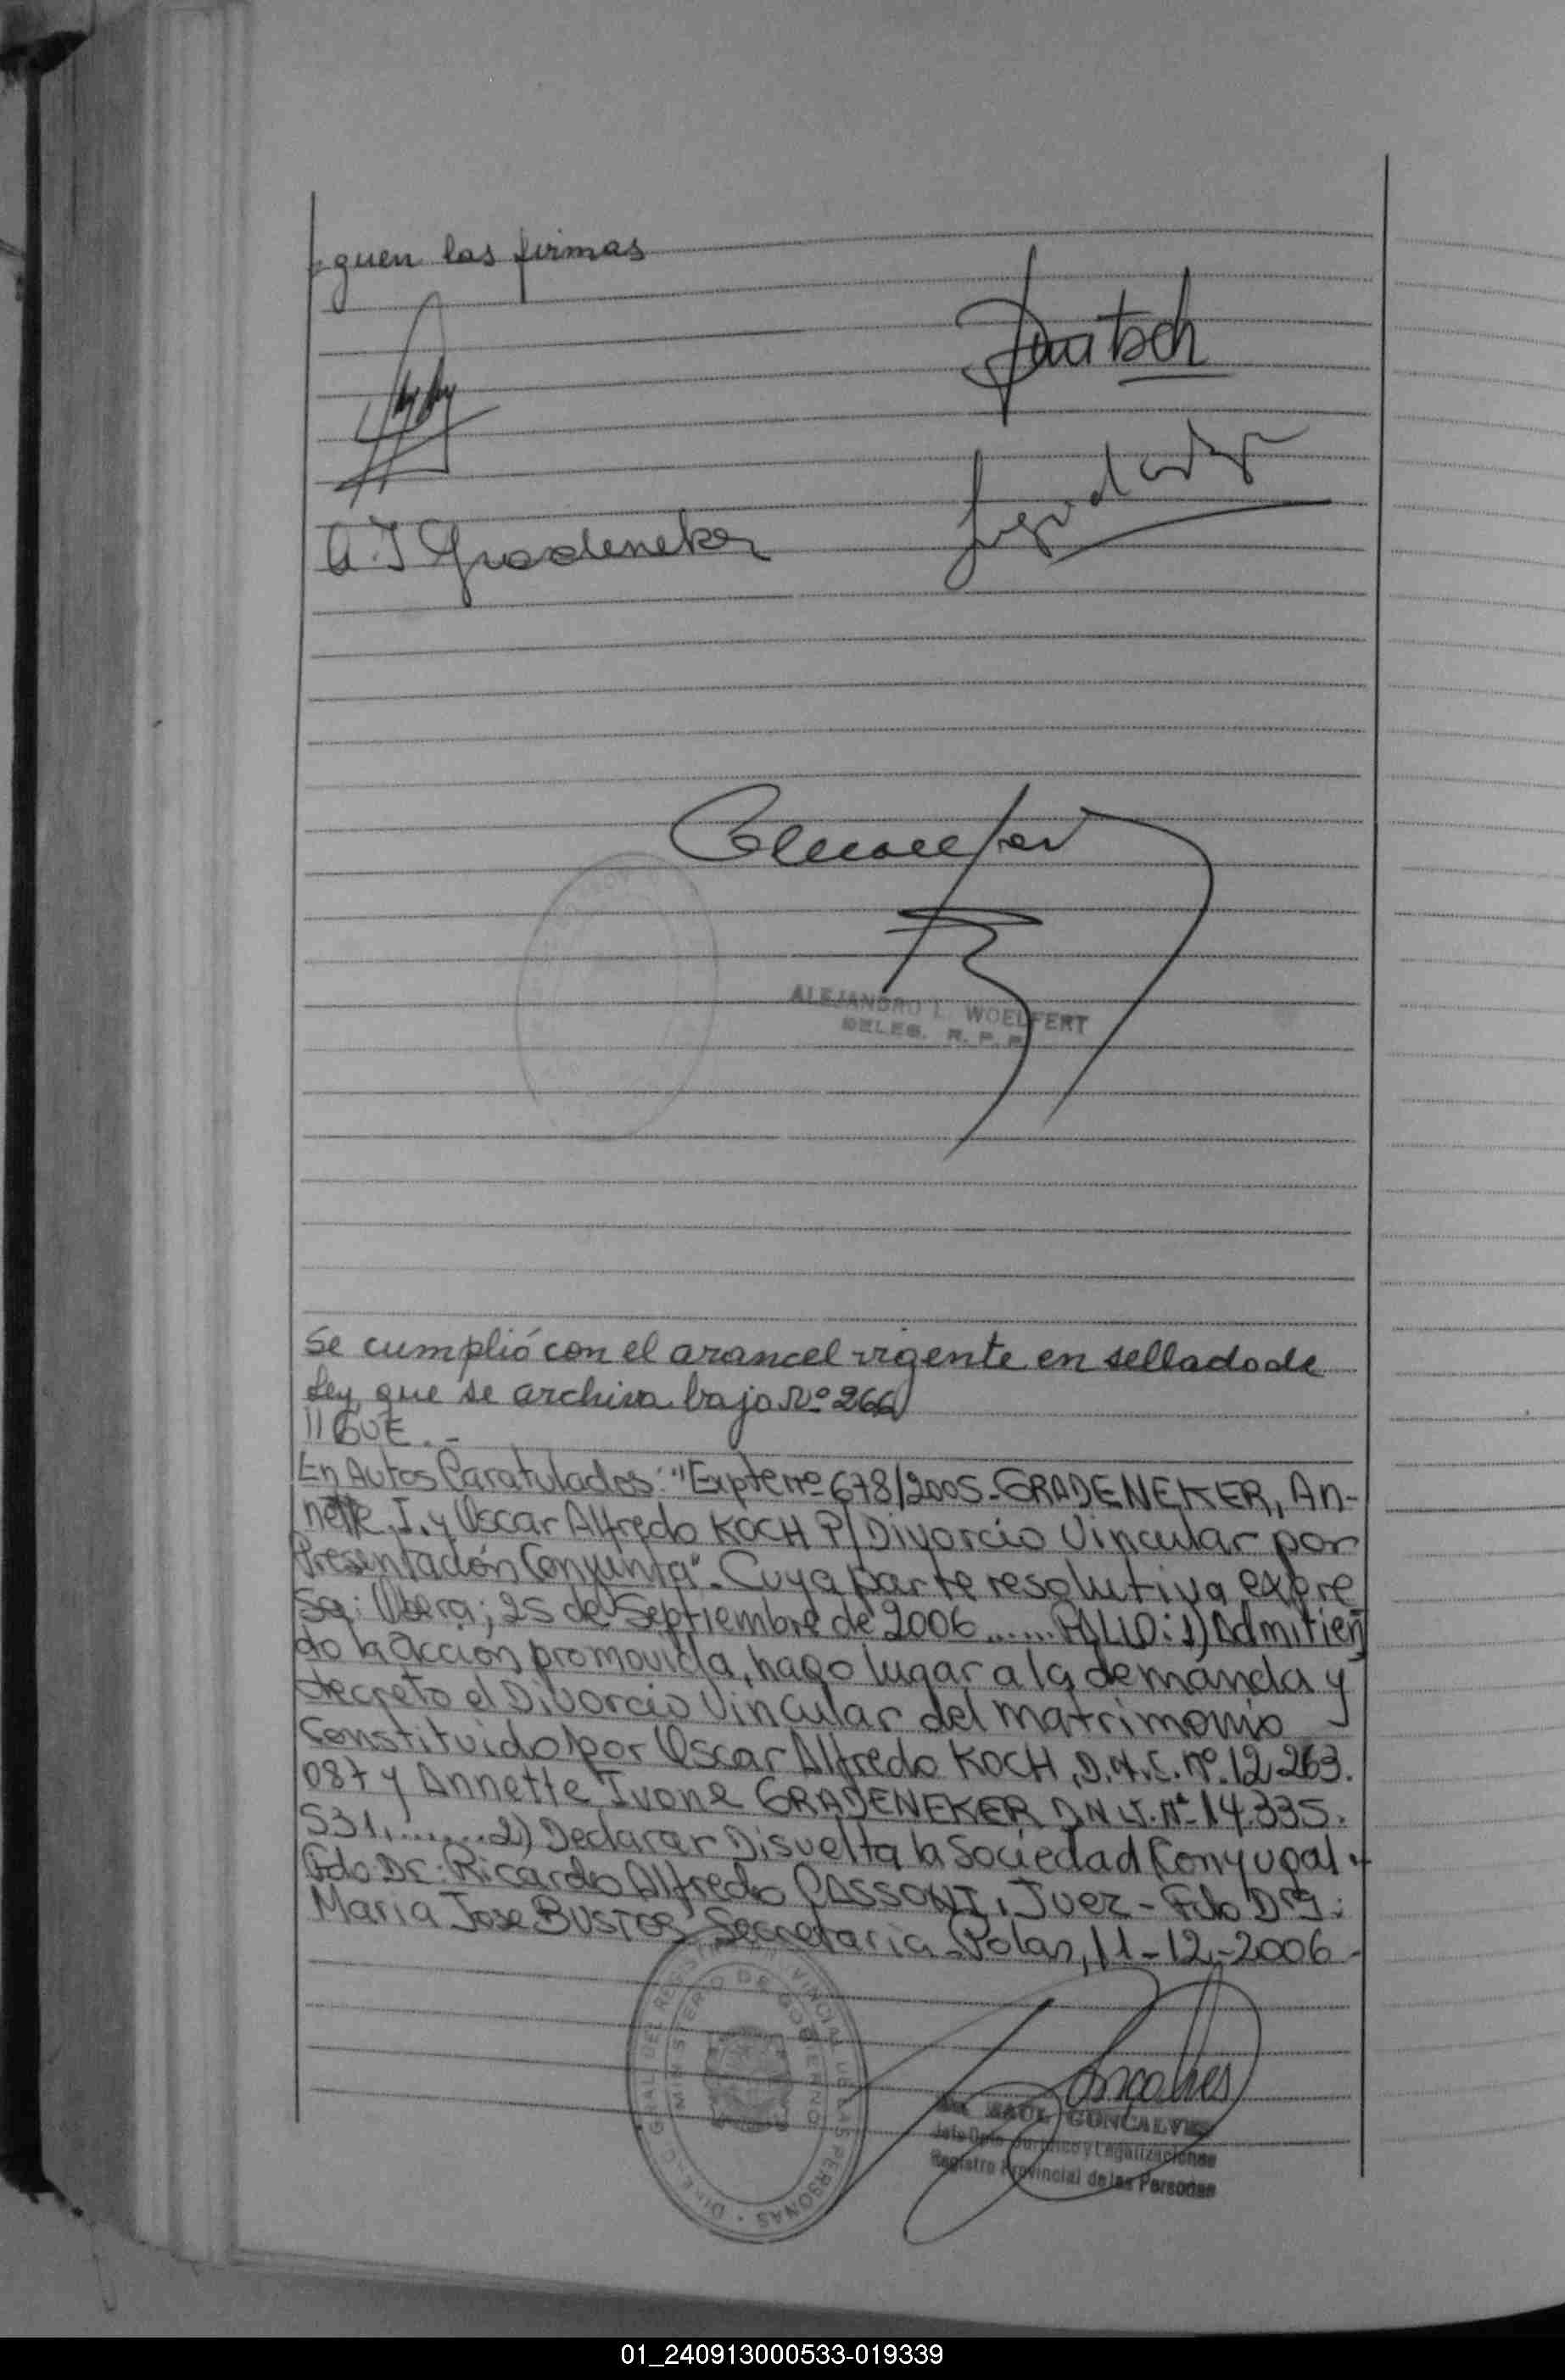 guen las firmas
A. I Gradeneker
ALEJANDRO L. WOELFERT
DELEG. R. P. P.
Se cumplió con el arancel vigente en sellado de
Ley que se archiva bajo Nº 266
//GUE.-
En Autos Caratulados: "Expte nº 678/2005-GRADENEKER, An-
nette I. y Oscar Alfredo KOCH P/ Divorcio Vincular por
Presentación Conjunta". Cuya parte resolutiva expre
sa: Obera; 25 de Septiembre de 2006 ...... FALLO: 1) Admitien
do la acción promovida, hago lugar a la demanda y
decreto el Divorcio Vincular del matrimonio
Constituido por Oscar Alfredo KOCH, D.N.I. nº. 12.263.
087 y Annette Ivone GRADENEKER D.N.I. Nº- 14.335.
531, ........ 2) Declarar Disuelta la Sociedad Conyugal.
Fdo Dr: Ricardo Alfredo CASSONI, Juez - Fdo Dra:
Maria Jose BUSTOS Secretaria - Pdas, 11-12-2006-
MINISTERIO DE GOBIERNO
GRAL DEL REGISTRO PROVINCIAL DE LAS PERSONAS
RAUL GONCALVES
Jefe Dpto Juridico y Legalizaciones
Registro Provincial de las Personas
01_240913000533-019339